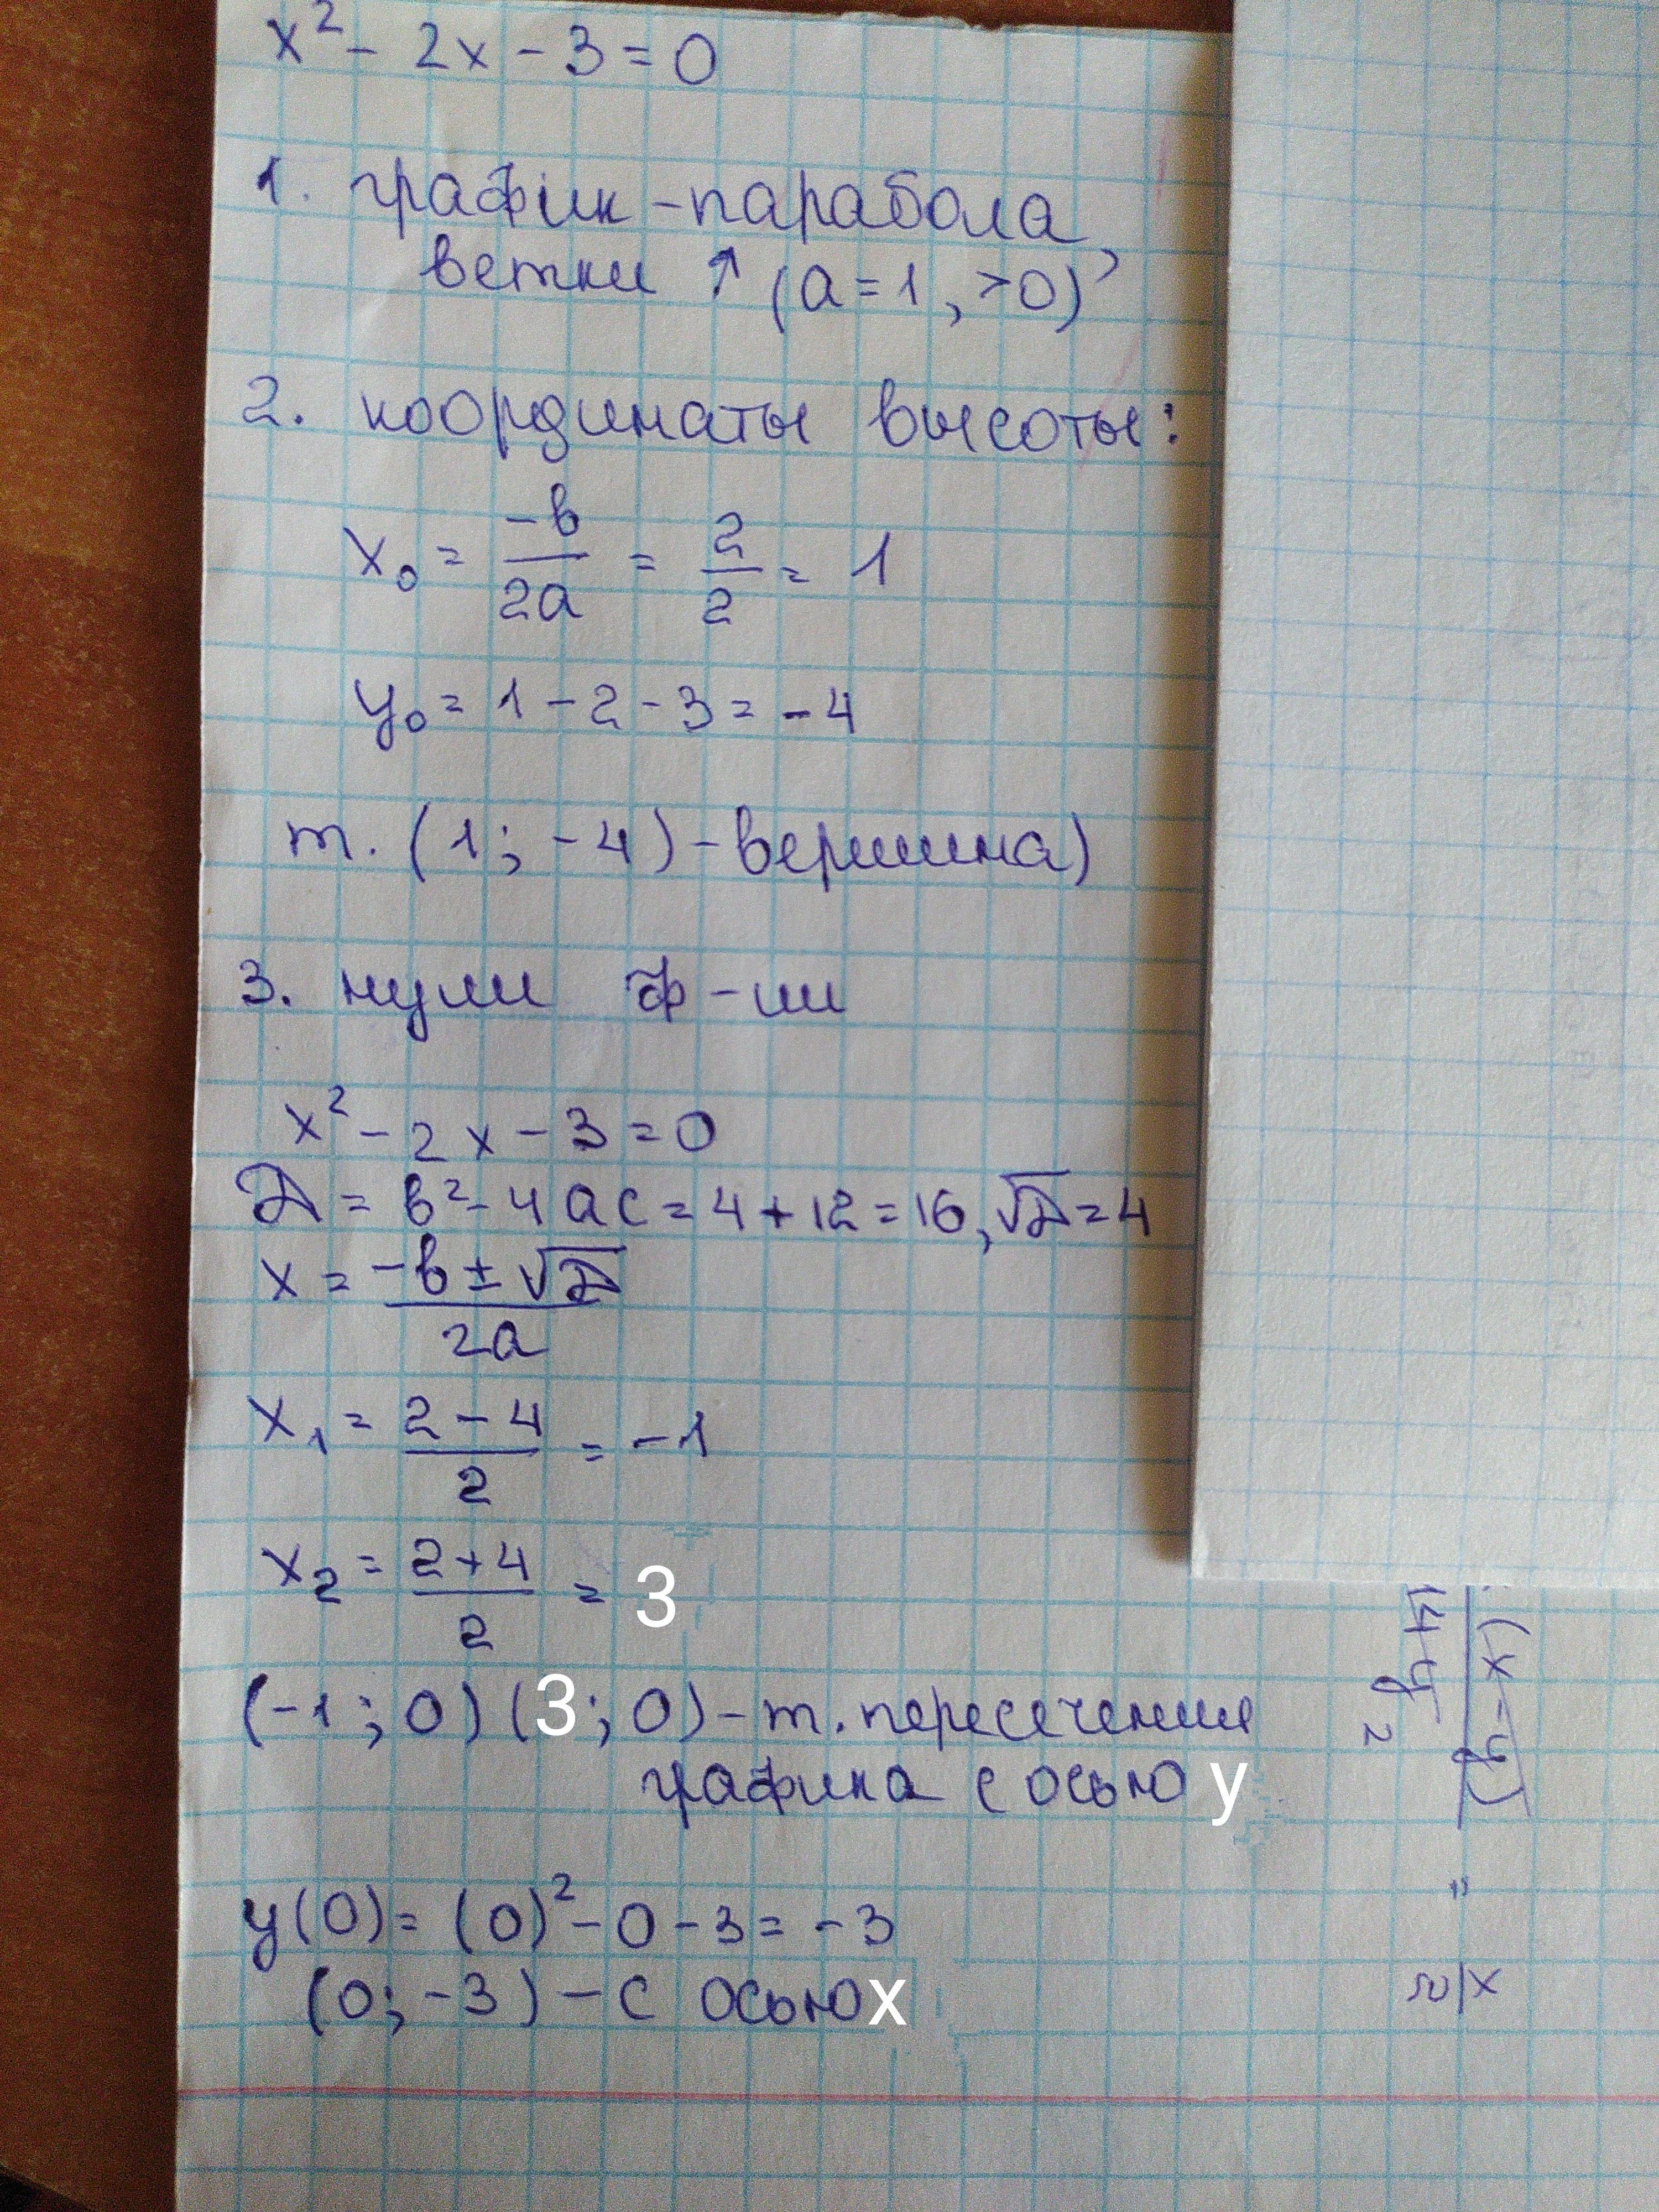 x² - 2x - 3 = 0
1. график - парабола,
ветки ↑ (a = 1, >0)
2. координаты высоты:
x₀ = -b/2a = 2/2 = 1
y₀ = 1 - 2 - 3 = -4
т. (1; -4) - вершина)
3. нули ф-ии
x² - 2x - 3 = 0
D = b² - 4ac = 4 + 12 = 16, √D = 4
x = (-b ± √D)/2a
x₁ = (2 - 4)/2 = -1
x₂ = (2 + 4)/2 = 3
(-1; 0) (3; 0) - т. пересечения
графика с осью y
y(0) = (0)² - 0 - 3 = -3
(0; -3) - с осью x